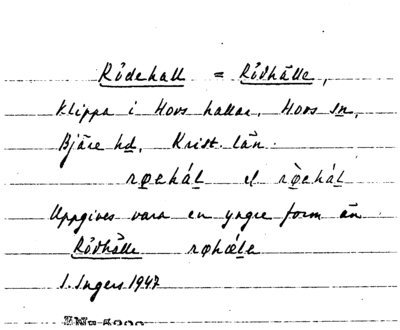 Rödehall = Rödhälle,
Klippa i Hovs hallar, Hovs sn,
Bjäre hd, Krist. län.
røehál el rø̀ehál
Uppgives vara en yngre form än
Rödhälle røhæ̀le
I. Ingers 1947